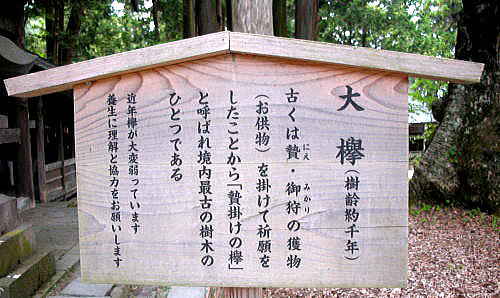 大欅（樹齢約千年）
古くは贄・御狩の獲物
にえ みかり
（お供物）を掛けて祈願を
したことから「贄掛けの欅」
と呼ばれ境内最古の樹木の
ひとつである
近年欅が大変弱っています
養生に理解と協力をお願いします